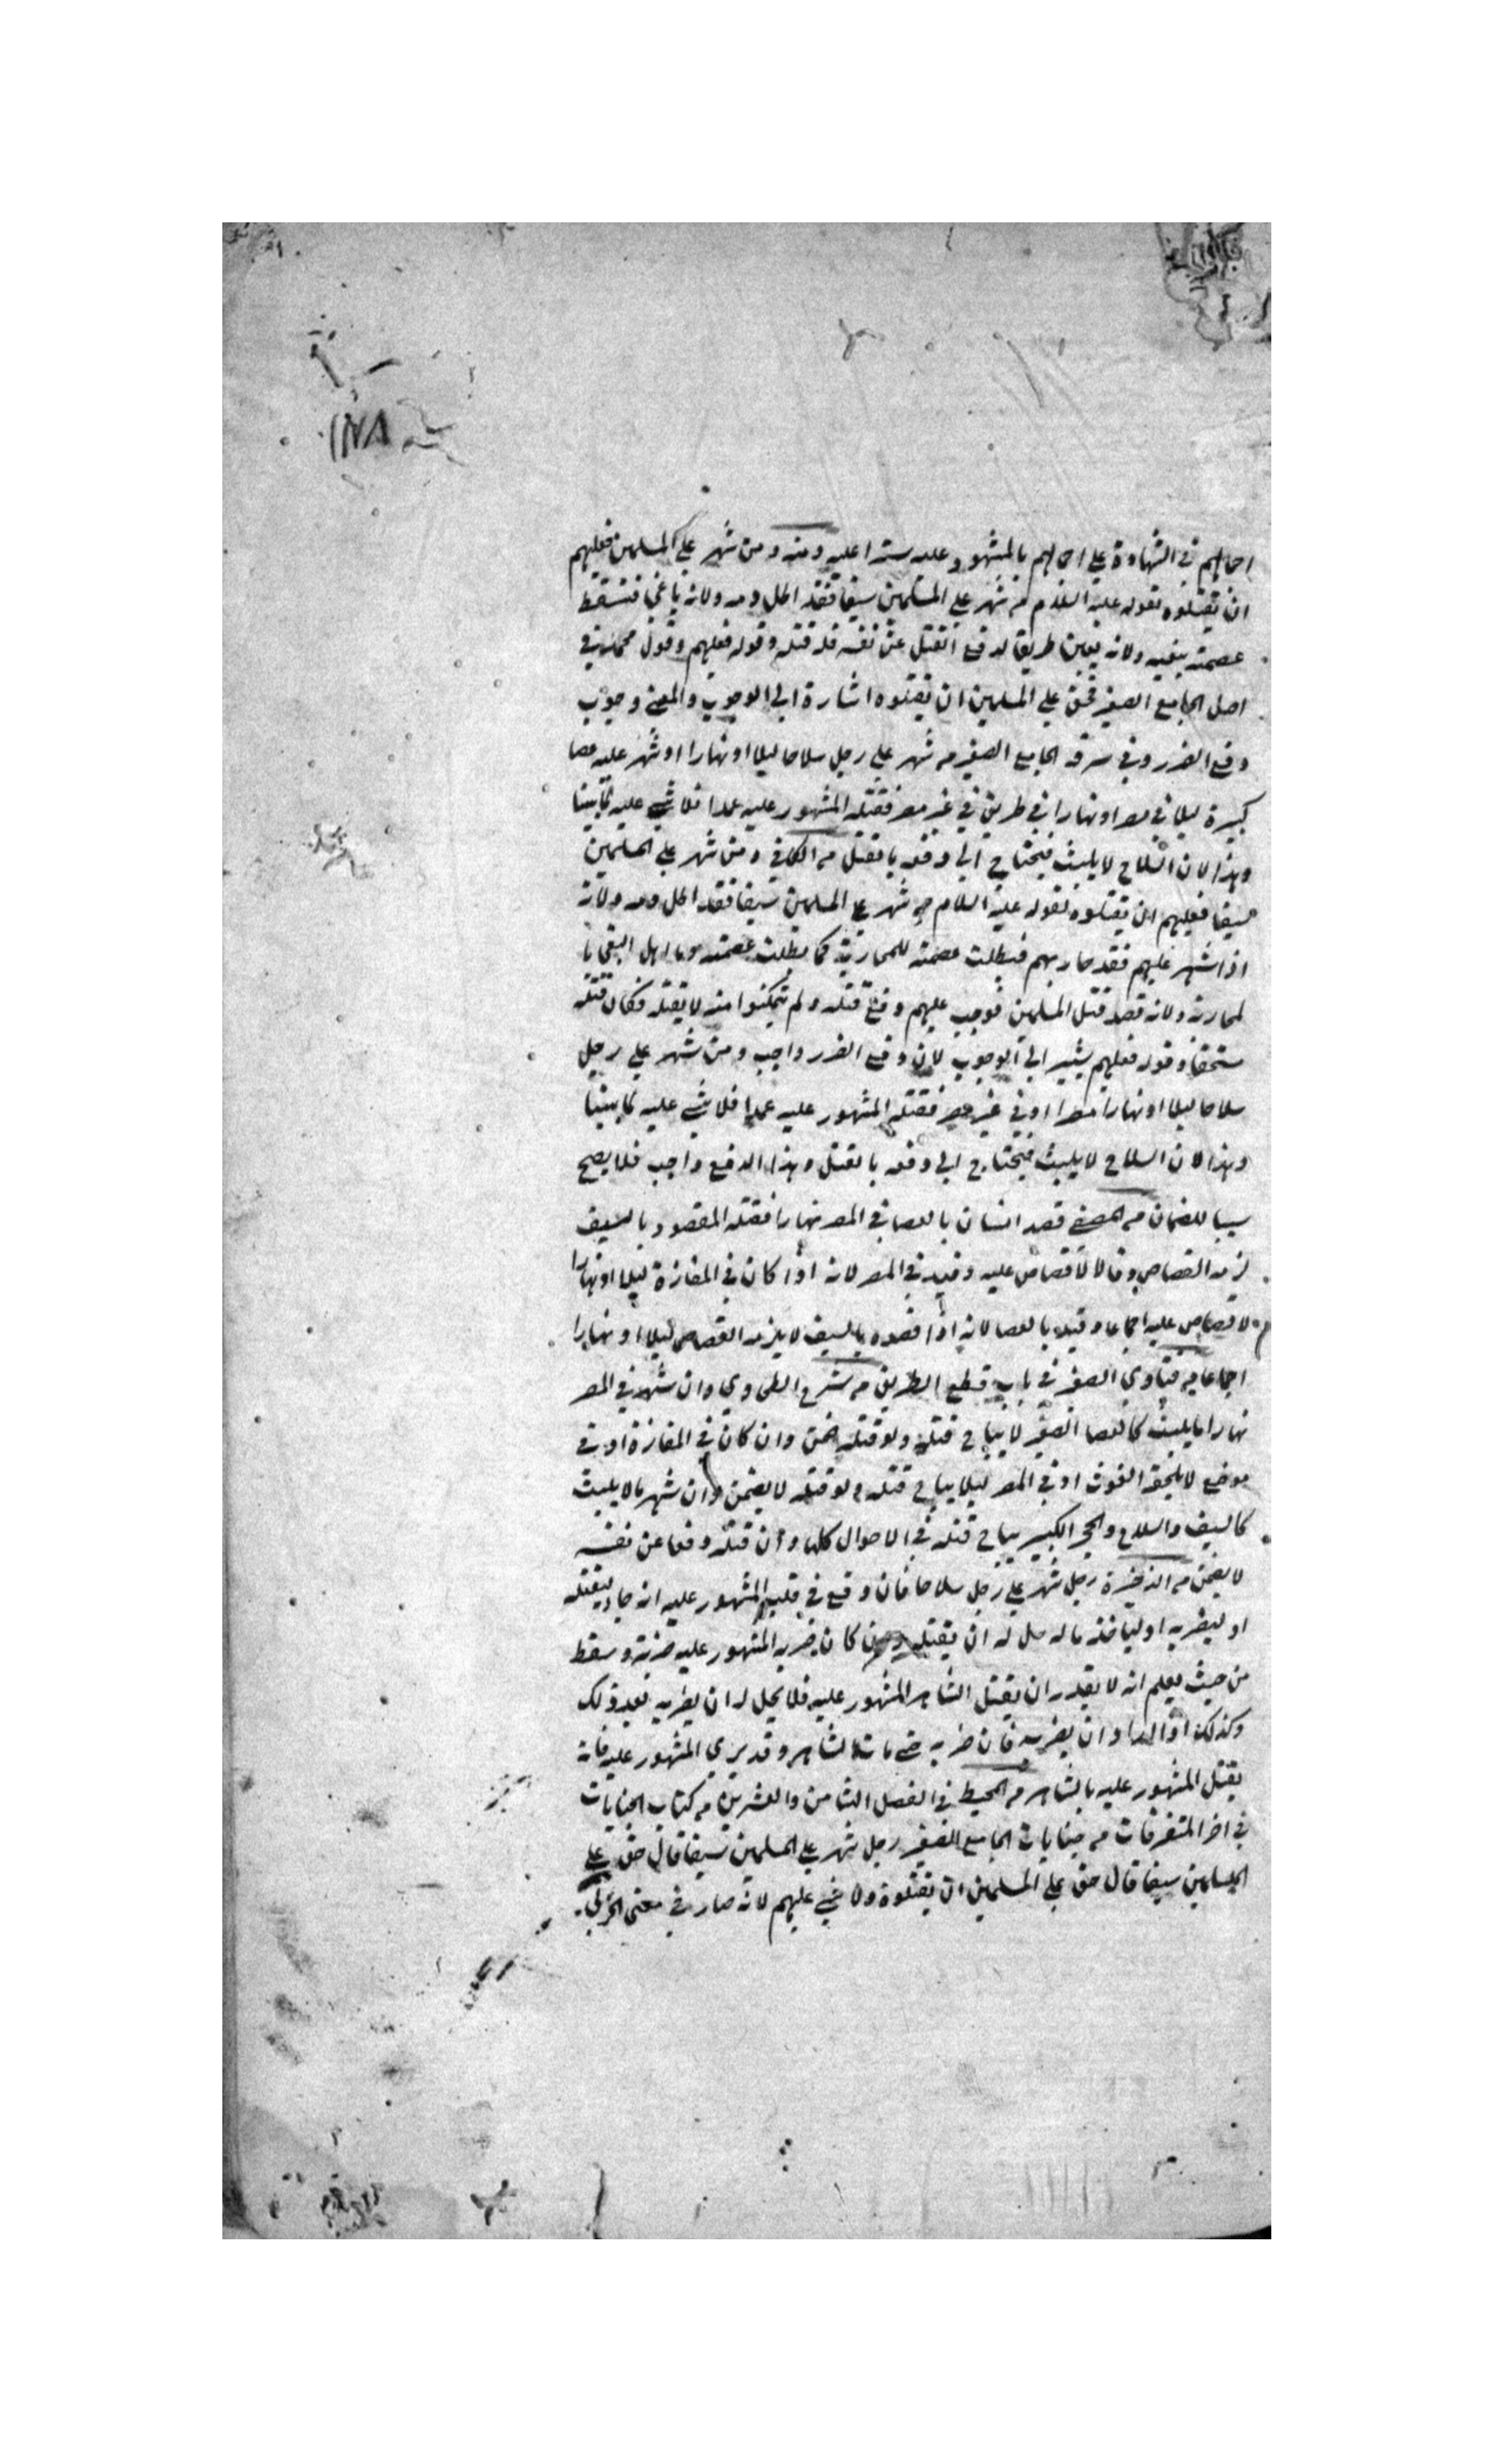 احالهم في الشهادة على احالهم بالمشهود عليه سترا عليه ومنه ومن شهر على المسلمين فعليهم
ان يقتلوه لقوله عليه السلام من شهر على المسلمين سيفا فقد اطل دمه ولانه باغي فتسقط
عصمته ببغيه ولانه تعين طريقا لدفع القتل عن نفسه فله قتله وقوله فعليهم وقول محمد في
اصل الجامع الصغير فحق على المسلمين ان يقتلوه اشارة الى الوجوب والمعنى وجوب
دفع الضرر وفي سرقة الجامع الصغير من شهر على رجل سلاحا ليلا او نهارا او شهر عليه عصا
كبيرة ليلا في مصر او نهارا في طريق في غير مصر فقتله المشهور عليه عمدا فلا شي عليه لما بينا
وهذا لان السلاح لا يلبث فيحتاج الى دفعه بالقتل من الكافي ومن شهر على المسلمين
سيفا فعليهم ان يقتلوه لقوله عليه السلام من شهر على المسلمين سيفا فقد اطل دمه ولانه
اذا شهر عليهم فقد حاربهم فبطلت عصمته للمحاربة كما بطلت عصمة دما اهل البغي با
لمحاربة ولانه قصد قتل المسلمين فوجب عليهم دفع قتله ولم يتمكنوا منه الا بقتله فكان قتله
مستحقا وقوله فعليهم يشير الى الوجوب لان دفع الضرر واجب ومن شهر على رجل
سلاحا ليلا او نهارا مصرا او في غير مصر فقتله المشهور عليه عمدا فلا شي عليه لما بينا
وهذا لان السلاح لا يلبث فيحتاج الى دفعه بالقتل وهذا الدفع واجب فلا يصح
سببا للضمان من المصفى قصد انسان بالعصا في المصر نهارا فقتله المقصود بالسيف
لزمه القصاص وقالا لا قصاص عليه وقيد في المصر لانه اذا كان في المفازة ليلا او نهارا
لا قصاص عليه اجماعا وقيد بالعصا لانه اذا قصده بالسيف لا يلزمه القصاص ليلا او نهارا
اجماعا من فتاوى الصغرى في باب قطع الطريق من شرح الطحاوي وان شهر في المصر
نهارا ما يلبث كالعصا الصغير لا يباح قتله ولو قتله ضمن وان كان في المفازة او في
موضع لا يلحقه الغوث او في المصر ليلا يباح قتله ولو قتله لا يضمن وان شهر ما لا يلبث
كالسيف والسلاح والحجر الكبير يباح قتله في الاحوال كلها وان قتله دفعا عن نفسه
لا يضمن من الذخيرة رجل شهر على رجل سلاحا فان وقع في قلب المشهور عليه انه جاء ليقتله
او ليضربه او ليأخذ ماله حل له ان يقتله كان ضربه المشهور عليه ضربة وسقط
من حيث يعلم انه لا يقدر ان يقتل الشاهر المشهور عليه فلا يحل له ان يضربه بعد ذلك
وكذلك اذا اراد ان يضربه فان ضربه حتى مات الشاهر وقد يرى المشهور عليه فانه
يقتل المشهور عليه بالشاهر من المحيط في الفصل الثامن والعشرين من كتاب الجنايات
في اخر المتفرقات من جنايات الجامع الصغير رجل شهر على المسلمين سيفا قال حق على
المسلمين سيفا قال حق على المسلمين ان يقتلوه ولا شي عليهم لانه صار في معنى الحربي